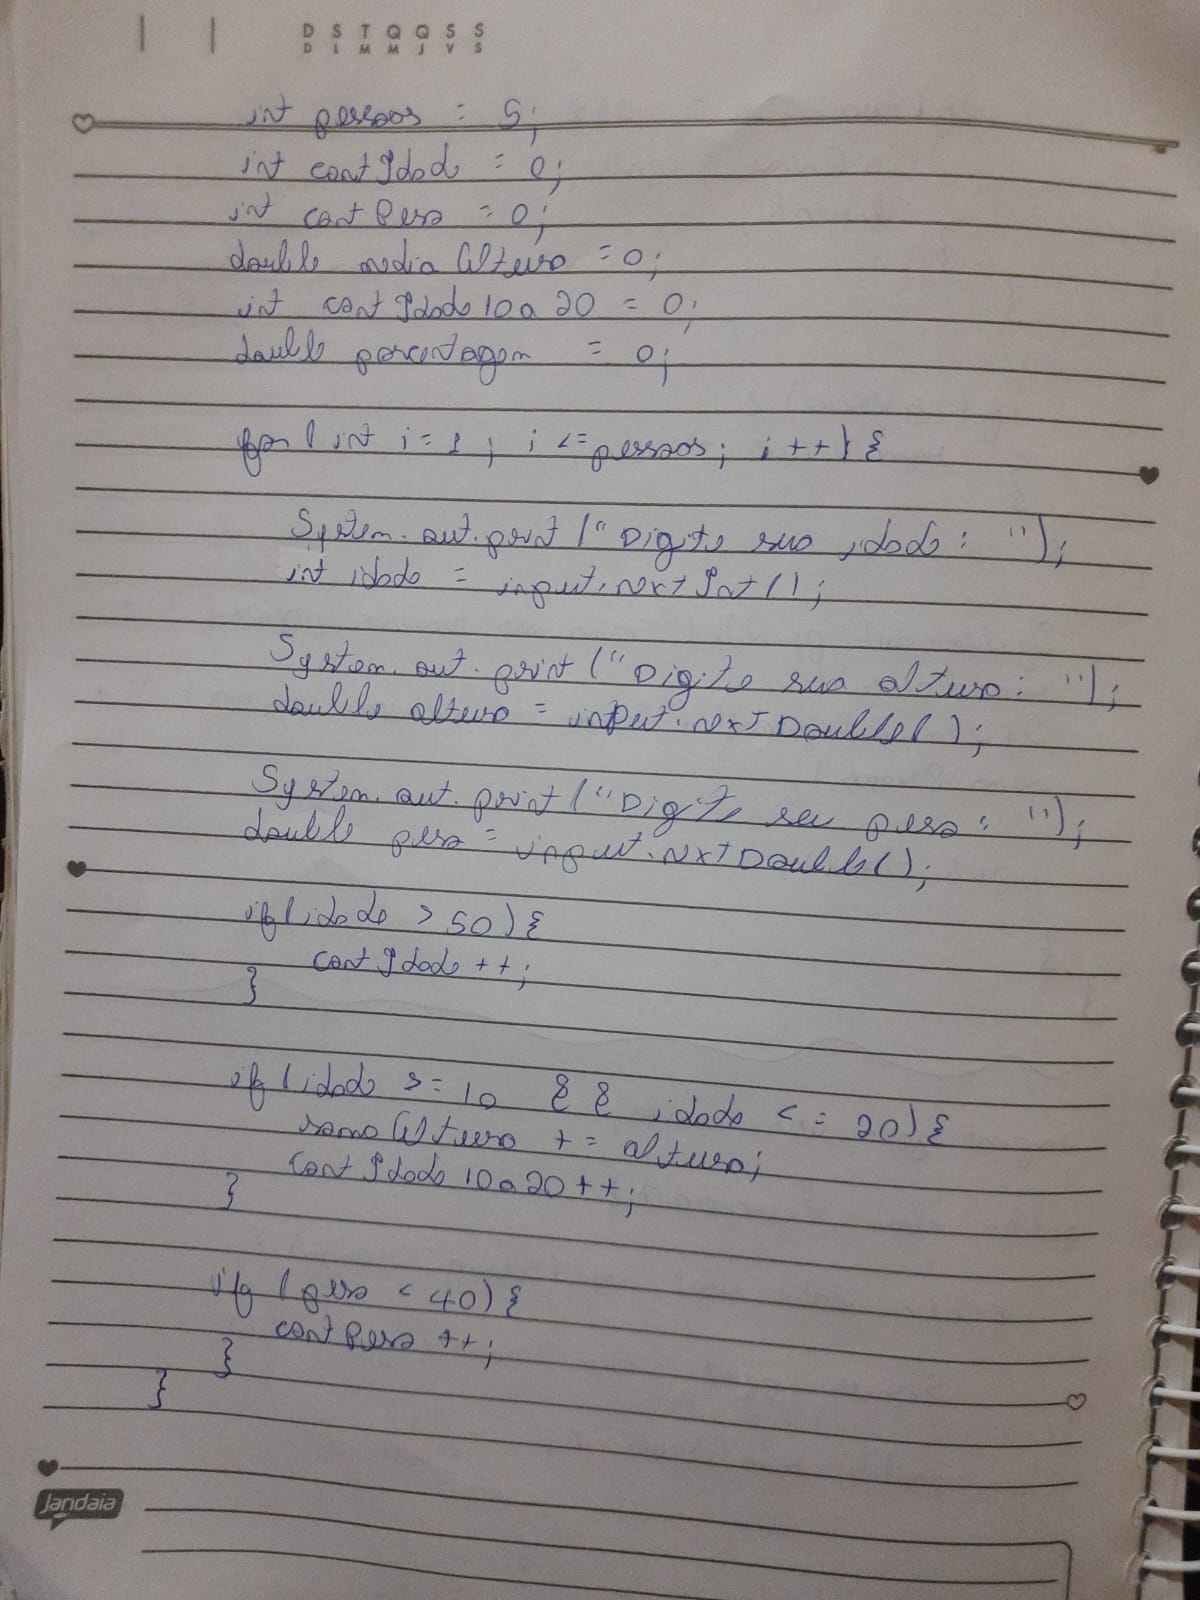 D S T Q Q S S
D L M M J V S
int pessoas = 5;
int contIdade = 0;
int contPeso = 0;
double mediaAltura = 0;
int contIdade10a20 = 0;
double porcentagem = 0;
for (int i = 1; i <= pessoas; i++) {
System.out.print ("Digite sua idade: ");
int idade = input.nextInt();
System.out.print ("Digite sua altura: ");
double altura = input.nextDouble();
System.out.print ("Digite seu peso: ");
double peso = input.nextDouble();
if (idade > 50) {
contIdade ++;
}
if (idade >= 10 && idade <= 20) {
somaAltura += altura;
contIdade10a20++;
}
if (peso < 40) {
contPeso ++;
}
}
Jandaia